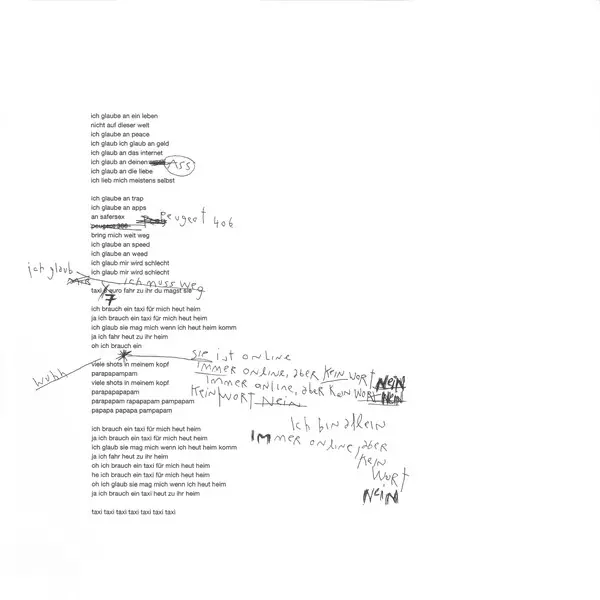 ich glaube an ein leben
nicht auf dieser welt
ich glaube an peace
ich glaub ich glaub an geld
ich glaub an das internet
ich glaub an deinen ASS
ich glaub an die liebe
ich lieb mich meistens selbst
ich glaube an trap
ich glaube an apps
an safersex
peugeot 206 Peugeot 406
bring mich weit weg
ich glaube an speed
ich glaube an weed
ich glaub mir wird schlecht
ich glaub ich glaub mir wird schlecht
ich muss weg
taxi 7 euro fahr zu ihr du magst sie
ich brauch ein taxi für mich heut heim
ja ich brauch ein taxi für mich heut heim
ich glaub sie mag mich wenn ich heut heim komm
ja ich fahr heut zu ihr heim
oh ich brauch ein
sie ist online
immer online, aber kein wort Nein
immer online, aber kein wort Nein
kein wort Nein
wuhh
viele shots in meinem kopf
parapapampam
viele shots in meinem kopf
parapapapapam
parapapam rapapapam pampapam
papapa papapa pampapam
ich brauch ein taxi für mich heut heim
ja ich brauch ein taxi für mich heut heim
ich glaub sie mag mich wenn ich heut heim komm
ja ich fahr heut zu ihr heim
oh ich brauch ein taxi für mich heut heim
he ich brauch ein taxi für mich heut heim
oh ich glaub sie mag mich wenn ich heut heim
ja ich brauch ein taxi heut zu ihr heim
Ich bin allein
immer online, aber
kein
wort
Nein
taxi taxi taxi taxi taxi taxi taxi